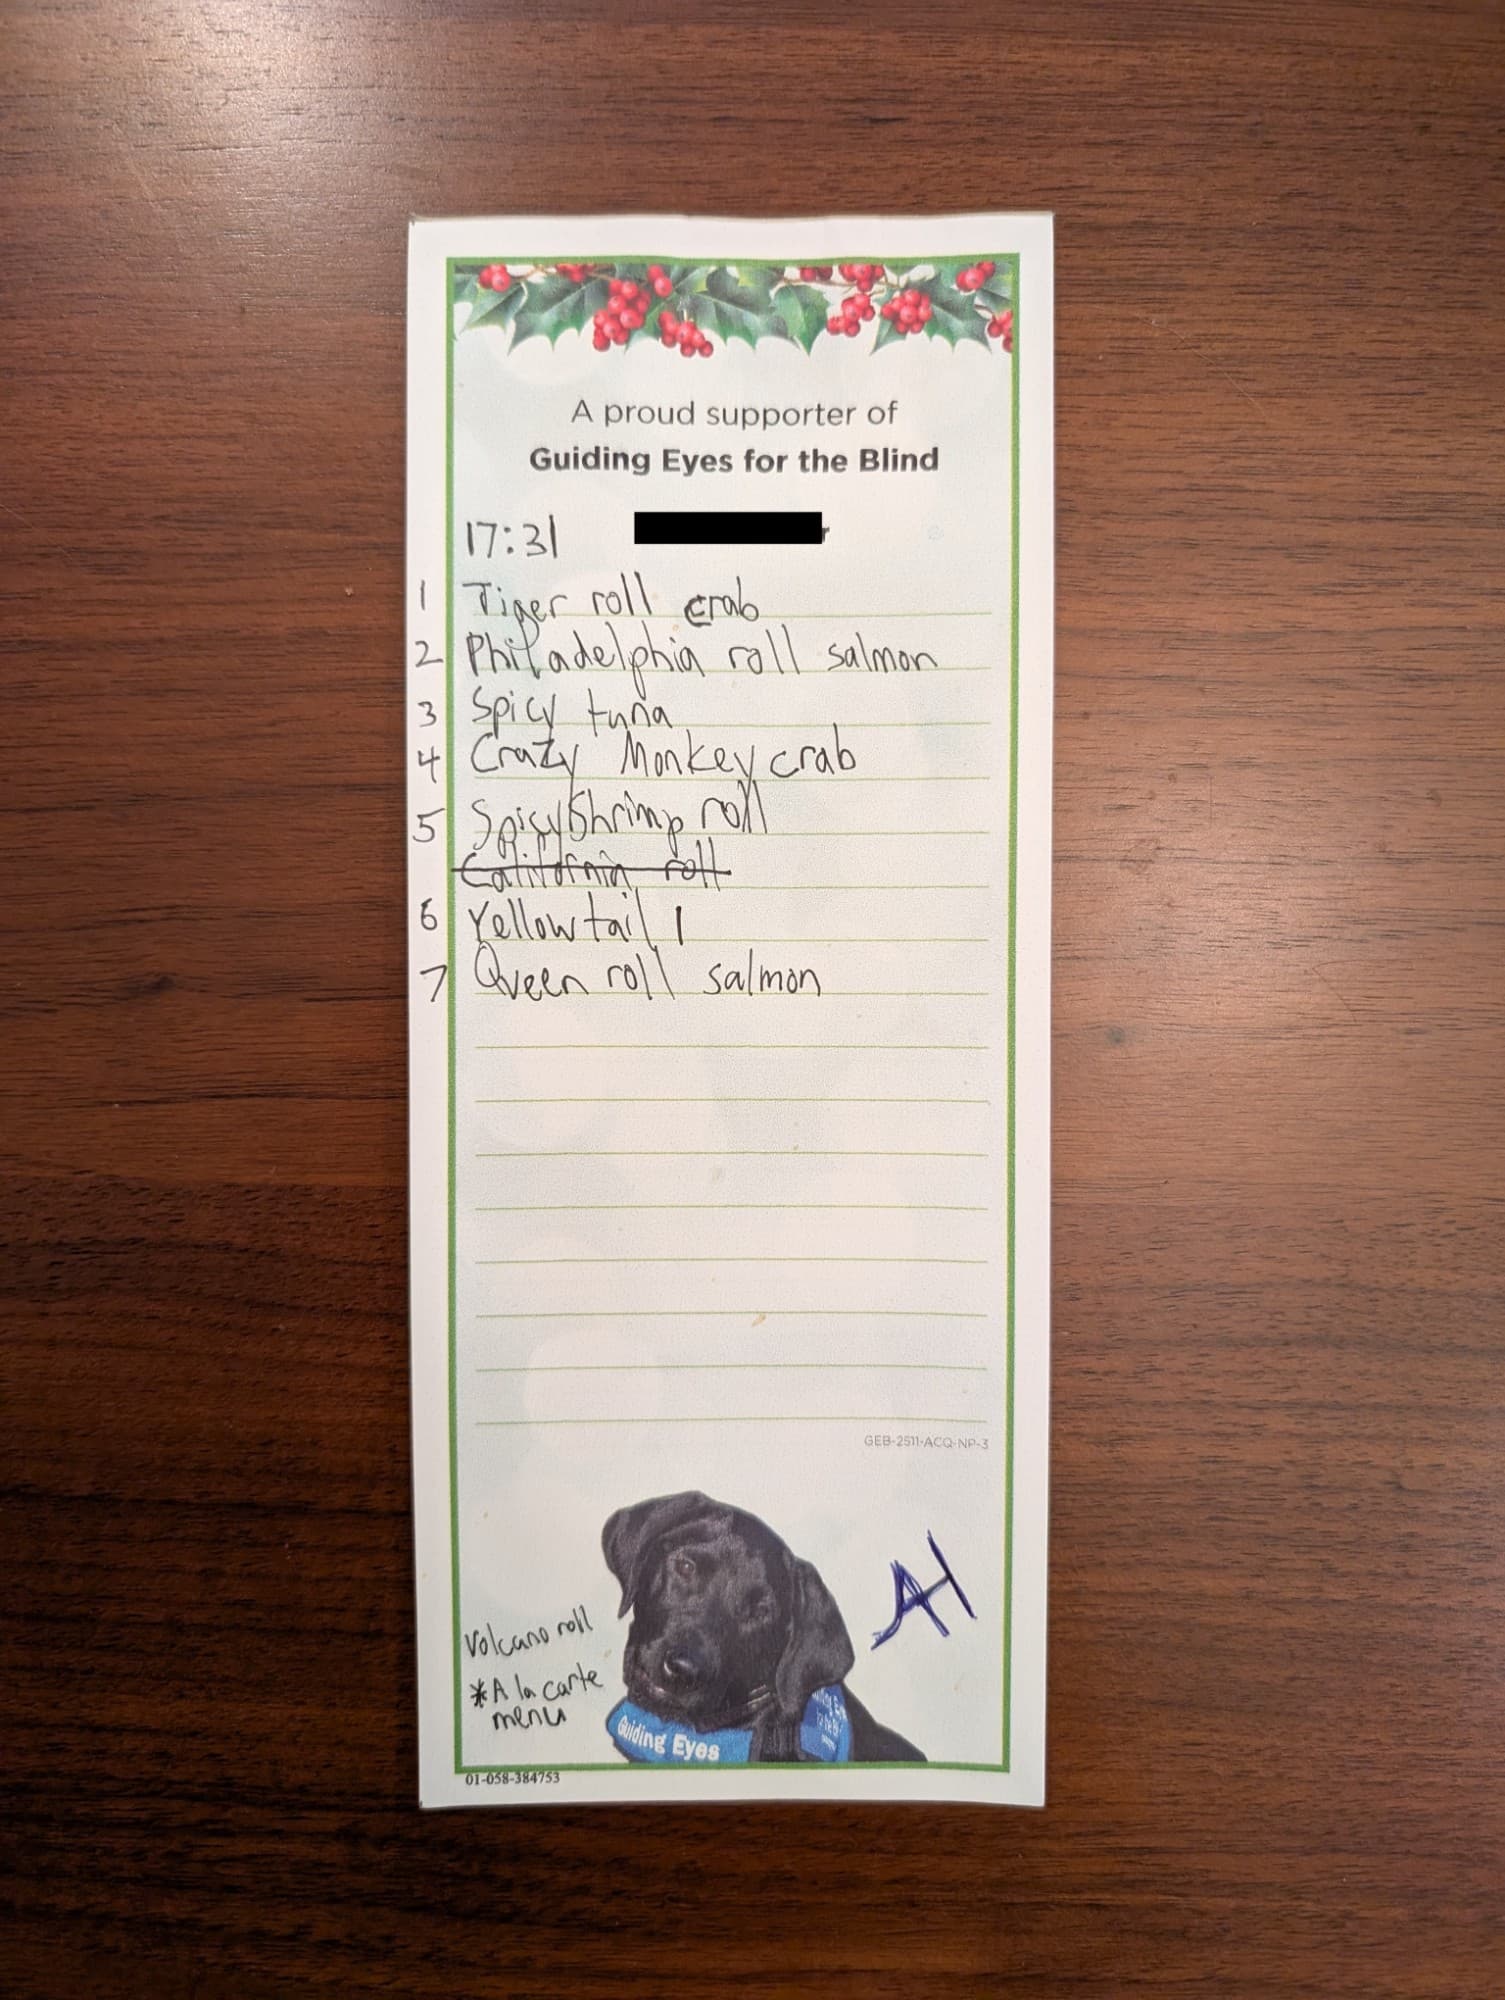 A proud supporter of
Guiding Eyes for the Blind
17:31
1 Tiger roll crab
2 Philadelphia roll salmon
3 Spicy tuna
4 Crazy Monkey crab
5 Spicy Shrimp roll
California roll
6 Yellowtail 1
7 Queen roll salmon
GEB-2511-ACQ-NP-3
AH
Volcano roll
*A la carte
menu
Guiding Eyes
01-058-384753